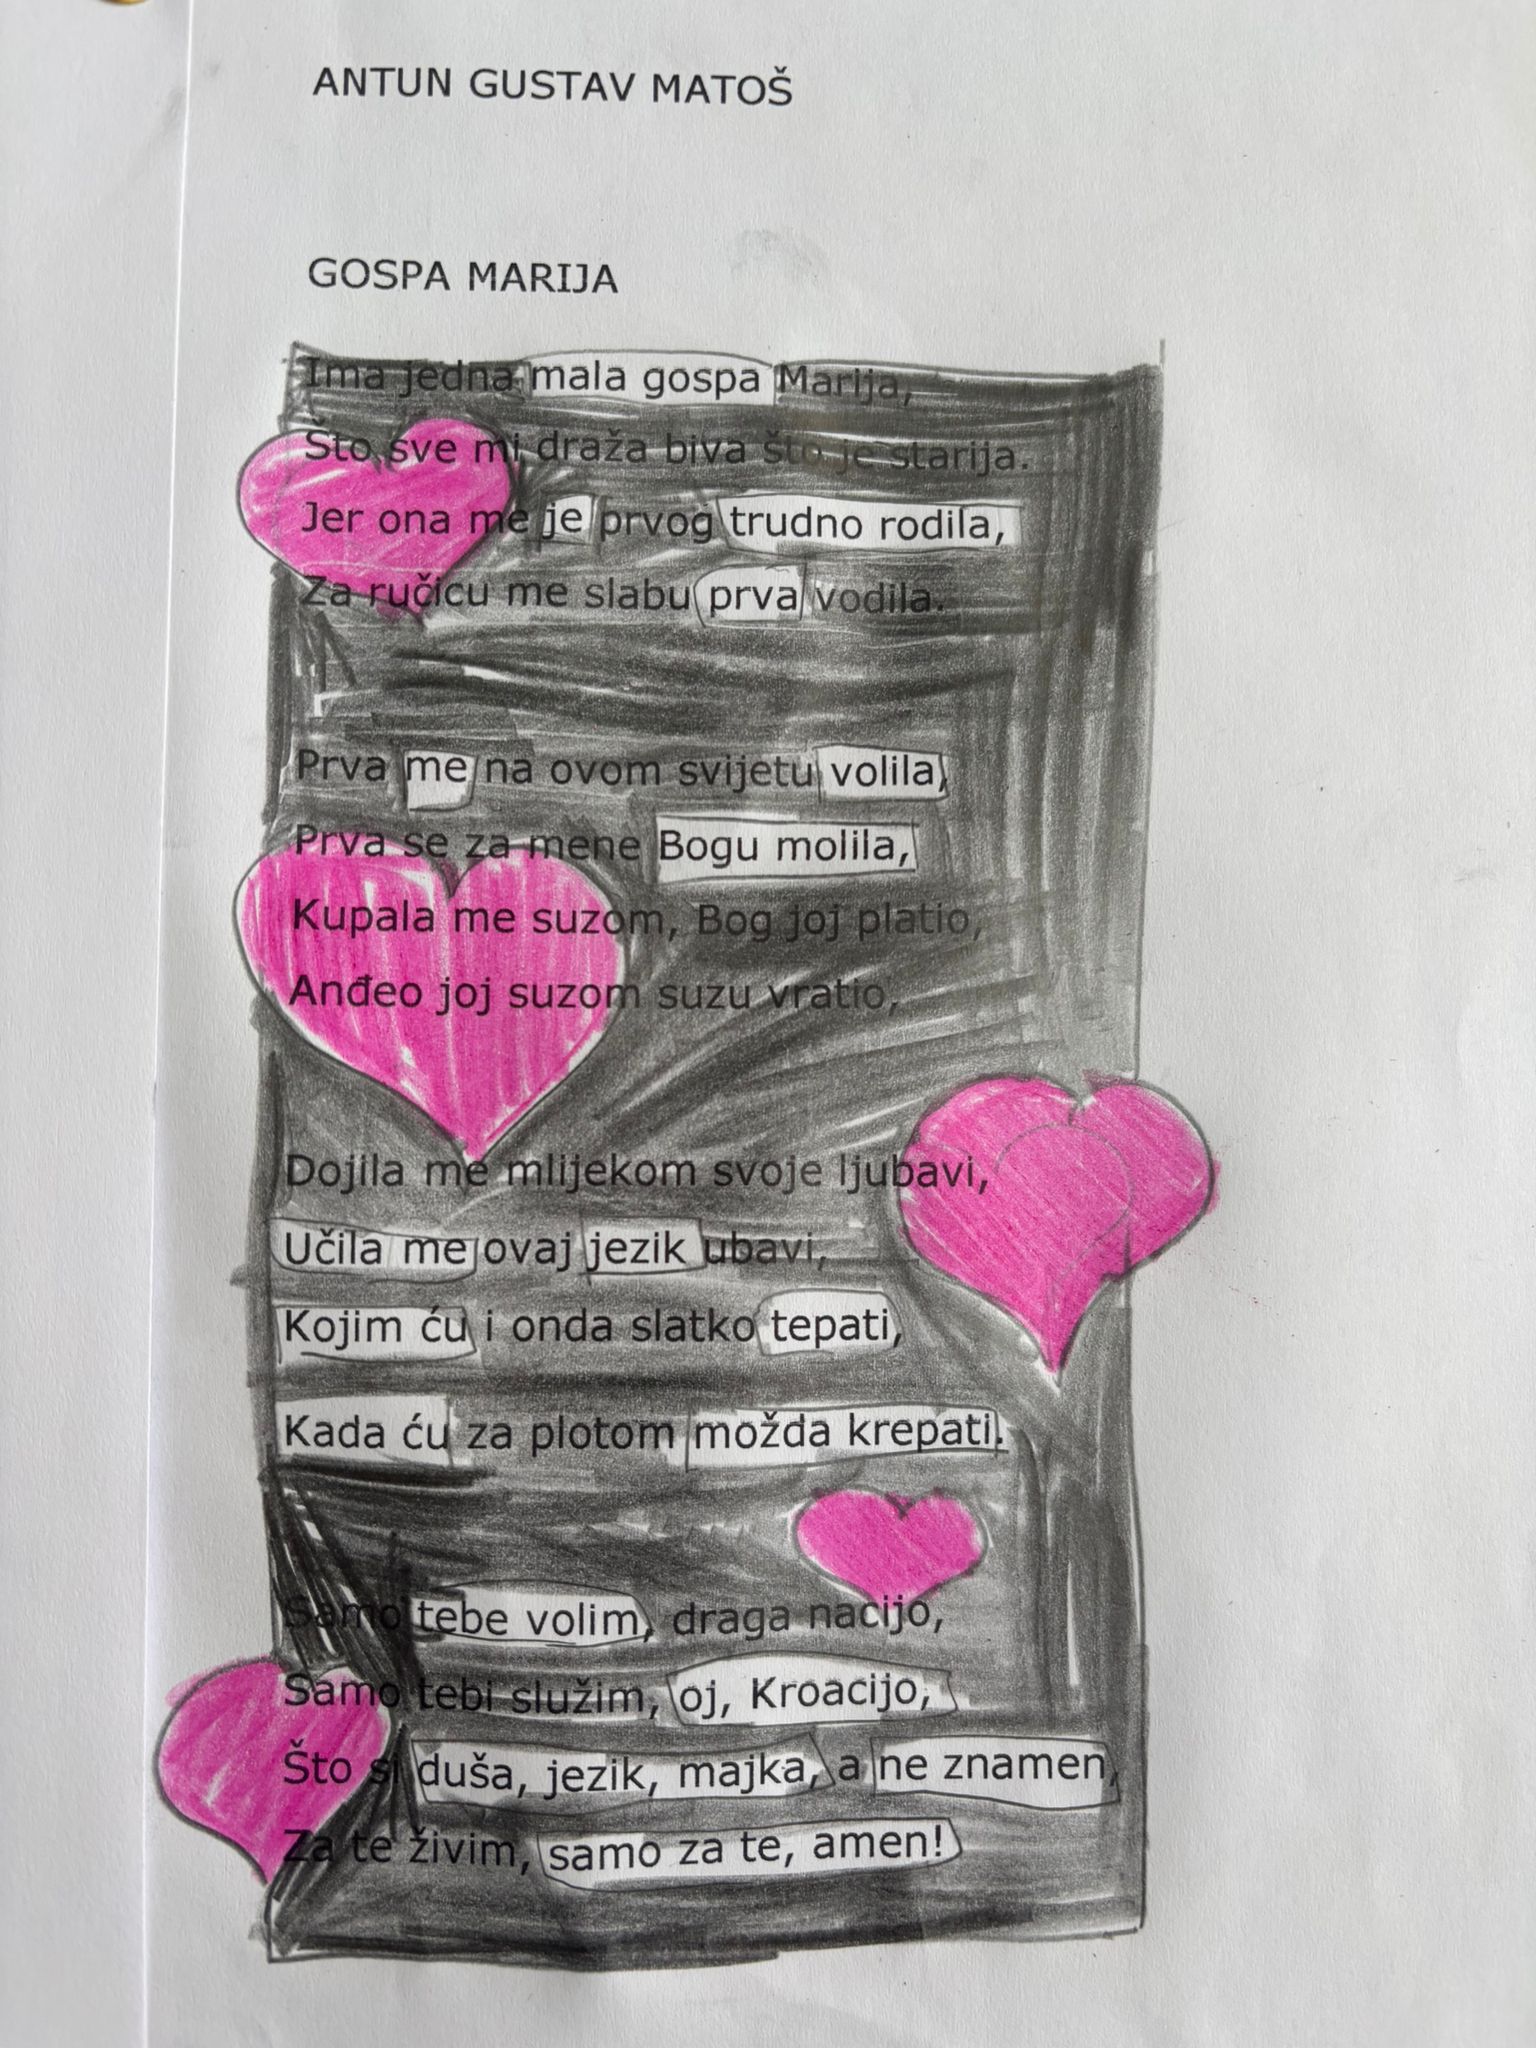 ANTUN GUSTAV MATOŠ
GOSPA MARIJA
Ima jedna mala gospa Marija,
Što sve mi draža biva što je starija.
Jer ona me je prvog trudno rodila,
Za ručicu me slabu prva vodila.
Prva me na ovom svijetu volila,
Prva se za mene Bogu molila,
Kupala me suzom, Bog joj platio,
Anđeo joj suzom suzu vratio,
Dojila me mlijekom svoje ljubavi,
Učila me ovaj jezik ubavi,
Kojim ću i onda slatko tepati,
Kada ću za plotom možda krepati.
Samo tebe volim, draga nacijo,
Samo tebi služim, oj, Kroacijo,
Što si duša, jezik, majka, a ne znamen,
Za te živim, samo za te, amen!